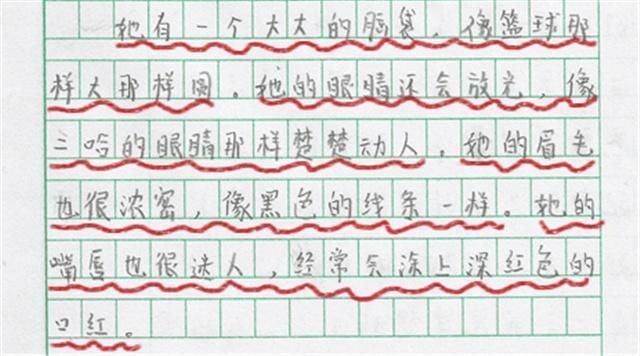 她有一个大大的脑袋，像篮球那
样大那样圆。她的眼睛还会放光，像
三哈的眼睛那样楚楚动人，她的眉毛
也很浓密，像黑色的线条一样。她的
嘴唇也很迷人，经常会涂上深红色的
口红。